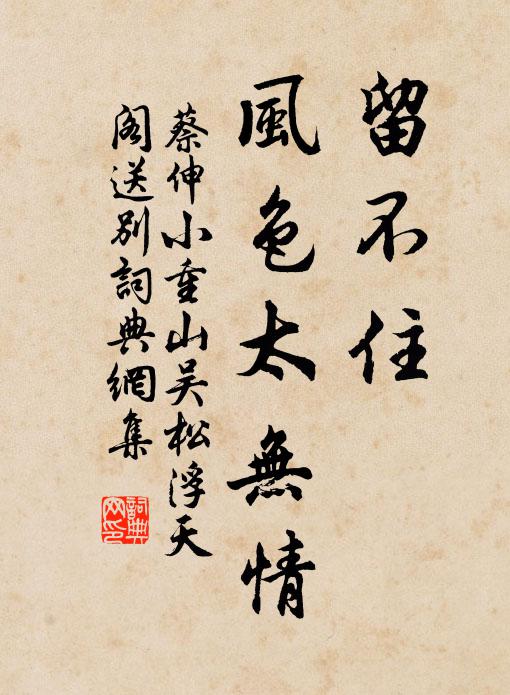 留不住
風色太無情
蔡伸小重山吴松浮天
閣送別詞典網集
詞典
网印